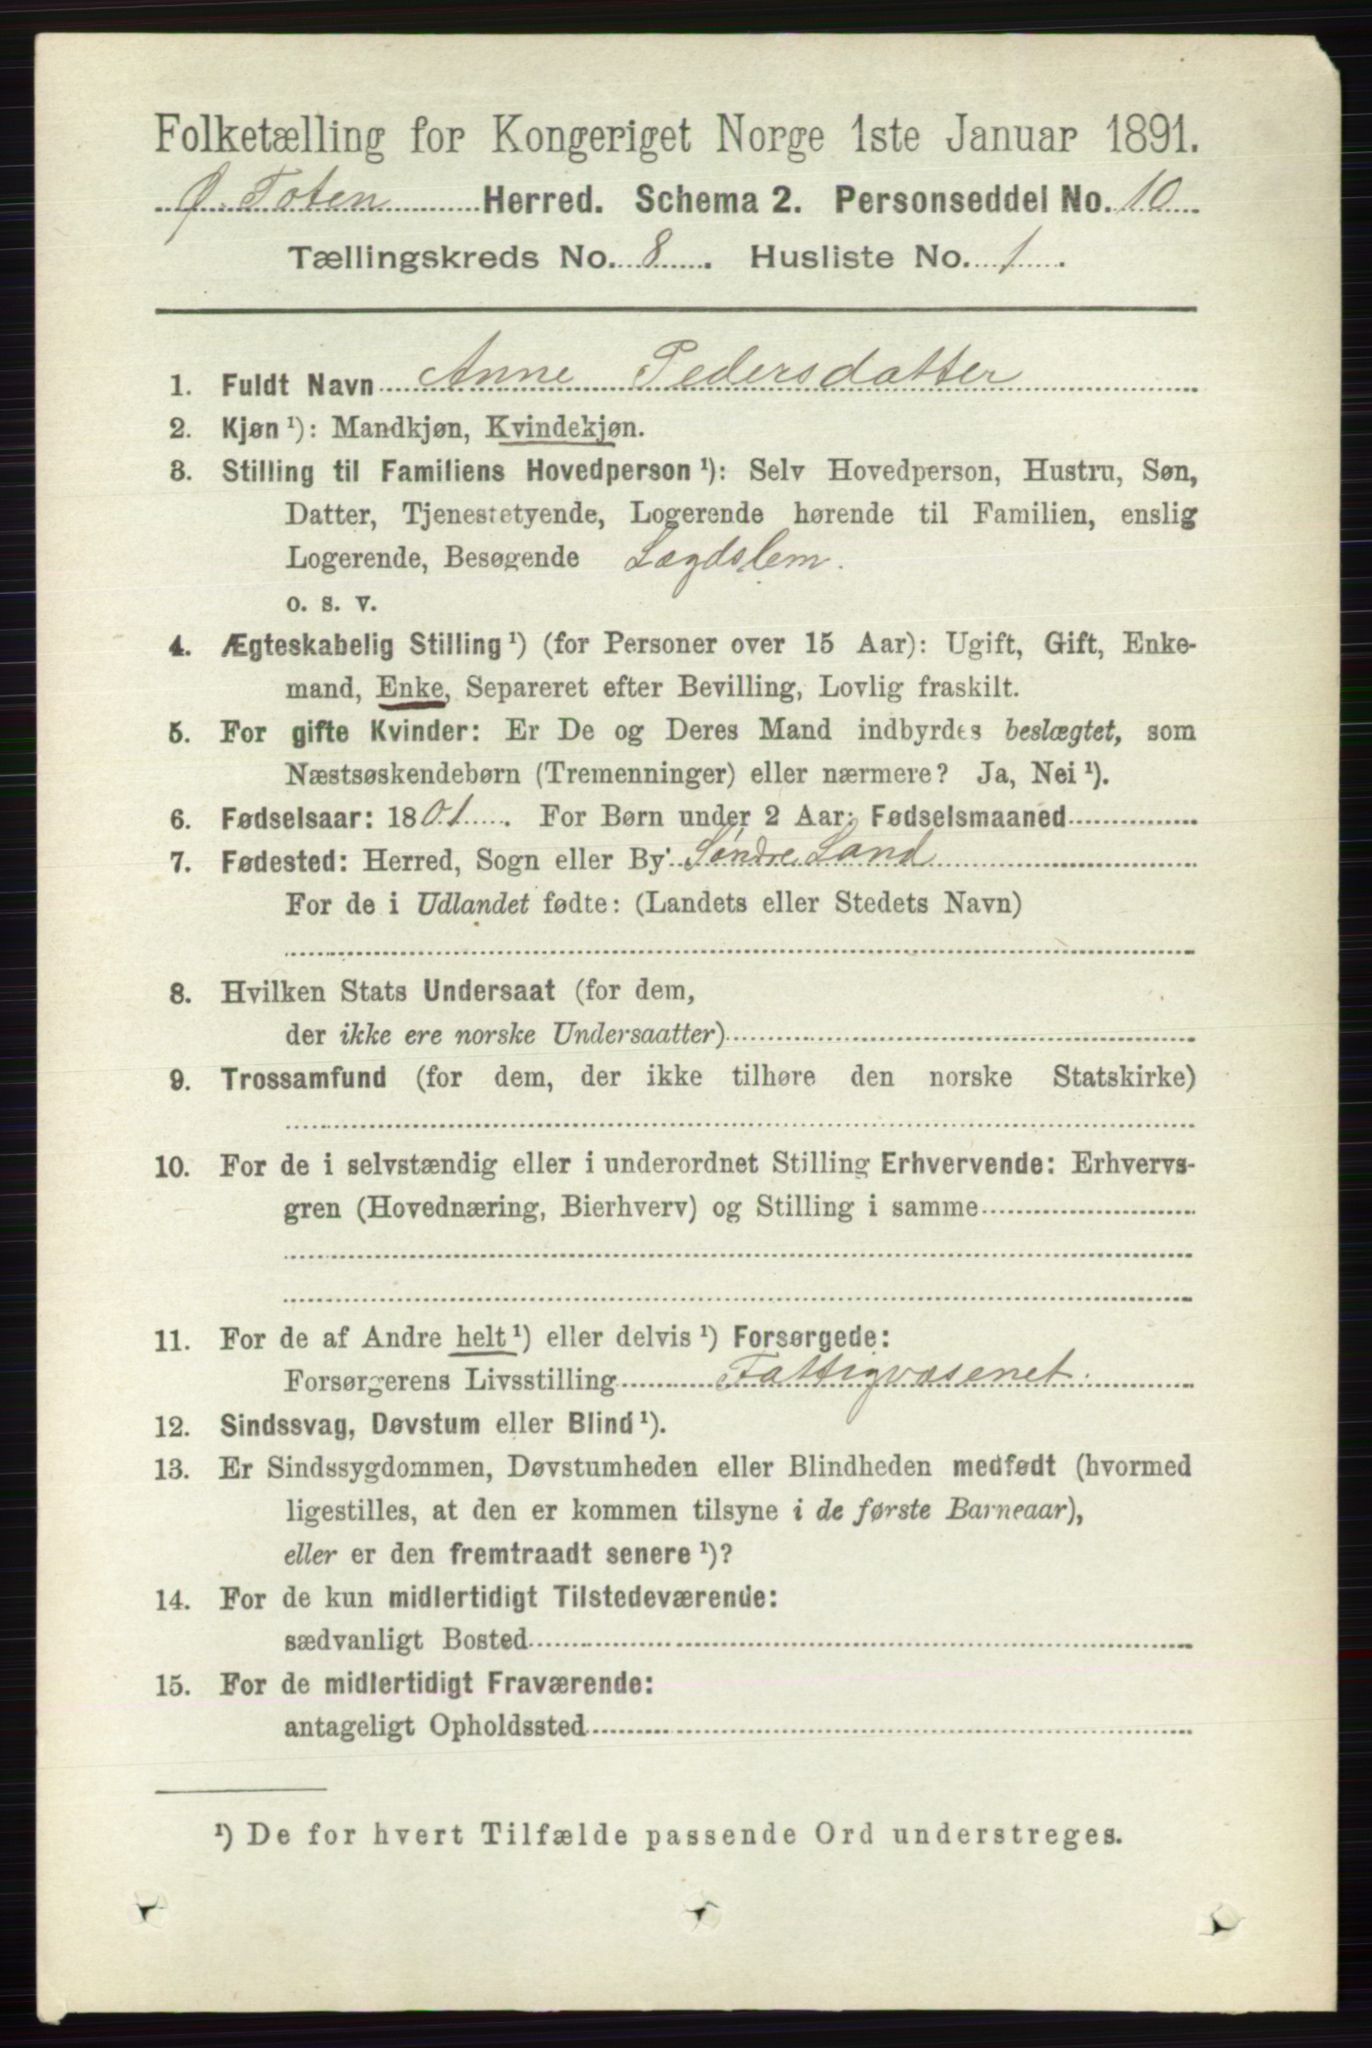 Folketælling for Kongeriget Norge 1ste Januar 1891.
Ø. Toten Herred. Schema 2. Personseddel No. 10
Tællingskreds No. 8. Husliste No. 1.
1. Fuldt Navn Anne Pedersdatter
2. Kjøn ¹): Mandkjøn, Kvindekjøn.
3. Stilling til Familiens Hovedperson ¹): Selv Hovedperson, Hustru, Søn,
Datter, Tjenestetyende, Logerende hørende til Familien, enslig
Logerende, Besøgende Lægdslem.
o. s. v.
4. Ægteskabelig Stilling ¹) (for Personer over 15 Aar): Ugift, Gift, Enke-
mand, Enke, Separeret efter Bevilling, Lovlig fraskilt.
5. For gifte Kvinder: Er De og Deres Mand indbyrdes beslægtet, som
Næstsøskendebørn (Tremenninger) eller nærmere? Ja, Nei ¹).
6. Fødselsaar: 1801. For Børn under 2 Aar: Fødselsmaaned
7. Fødested: Herred, Sogn eller By Søndre Land
For de i Udlandet fødte: (Landets eller Stedets Navn)
8. Hvilken Stats Undersaat (for dem,
der ikke ere norske Undersaatter)
9. Trossamfund (for dem, der ikke tilhøre den norske Statskirke)
10. For de i selvstændig eller i underordnet Stilling Erhvervende: Erhvervs-
gren (Hovednæring, Bierhverv) og Stilling i samme
11. For de af Andre helt ¹) eller delvis ¹) Forsørgede:
Forsørgerens Livsstilling Fattigvæsenet.
12. Sindssvag, Døvstum eller Blind ¹).
13. Er Sindssygdommen, Døvstumheden eller Blindheden medfødt (hvormed
ligestilles, at den er kommen tilsyne i de første Barneaar),
eller er den fremtraadt senere ¹)?
14. For de kun midlertidigt Tilstedeværende:
sædvanligt Bosted
15. For de midlertidigt Fraværende:
antageligt Opholdssted
¹) De for hvert Tilfælde passende Ord understreges.